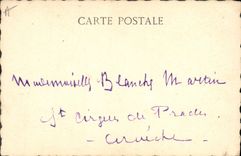 CARTE POSTALE
Mademoiselle Blanche Martin
St Cirgues de Prades
- Ardèche -